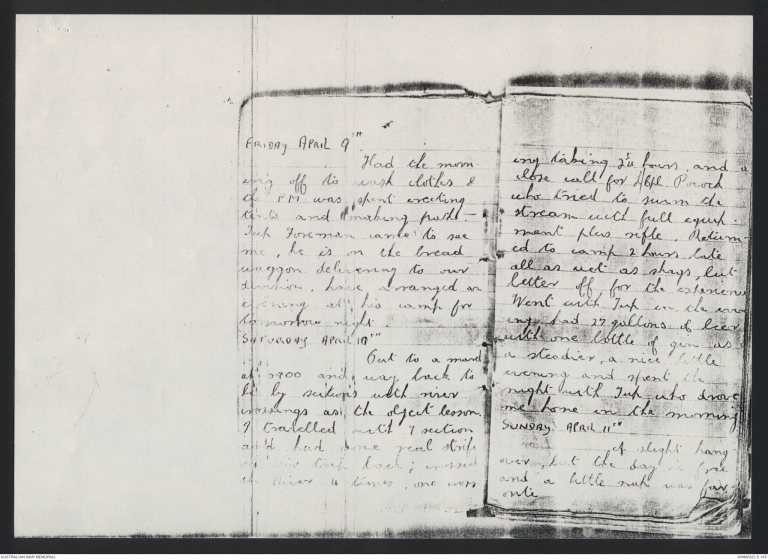 FRIDAY APRIL 9TH
Had the morn-
ing off to wash clothes &
the PM was spent erecting
tents and making paths -
Tup Foreman came to see
me, he is on the bread
waggon delivering to our
division, have arranged an
evening at his camp for
tomorrow night
SATURDAY APRIL 10TH
Out to a
at 0900 and way back to
be by sections with river
crossings as the object lesson.
I travelled with 7 section
and had some real strife
on our trip back; crossed
the river 4 times, one cross
ing taking 2¼ hours, and a
close call for
who tried to swim the
stream with full equip-
ment plus rifle. Return-
ed to camp 2 hours late
all as wet as shags, but
better off for the experience
Went with Tup in the even
ing, had 27 gallons of beer
with one bottle of gin as
a steadier, a nice little
evening and spent the
night with Tup who drove
me home in the morning
SUNDAY APRIL 11TH
A slight hang
over, but the day is free
and a little nap was fav-
orite
AUSTRALIAN WAR MEMORIAL